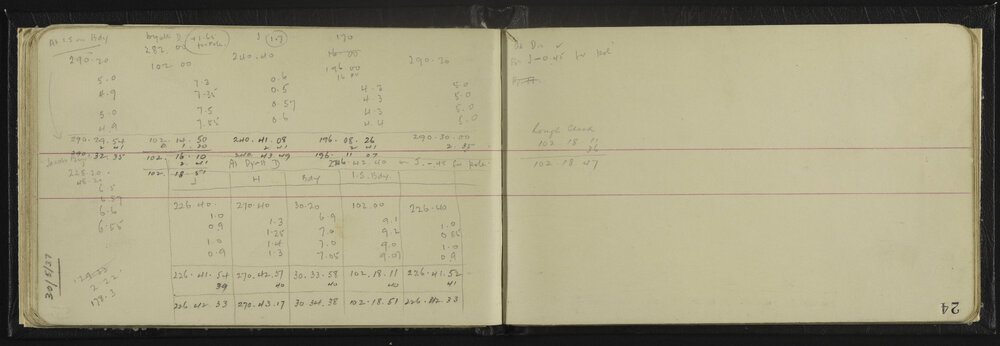 At I.S. on Bdy
282 00
+1.6s
J
1.7
170
290.20
102 00
240.40
16.00
196.00
16 00
290.20
5.0 7.3 0.6 4.3 5.0
4.9 7.35 0.5 4.3 5.0
5.0 7.5 0.57 4.3 5.0
4.9 7.55 0.6 4.4 5.0
290.29.54 102.14.50 240.41.08 196.08.26 290.30.00
2 41 1 20 2 41 2 41 2 35
290.32.35 102.16.10 240.43.49 196.11.07
2 41
102.18.51
At Dyott D 226 42 40 J. -45 for pole
228.20
6.5
6.57
6.6
6.55
J H Bdy I.S. Bdy.
226.40 270.40 30.20 102.00 226.40
1.0 1.3 6.9 9.1 1.0
0.9 1.25 7.0 9.2 0.85
1.0 1.4 7.0 9.0 1.0
0.9 1.3 7.05 9.07 0.9
226.41.54 270.42.37 30.33.58 102.18.11 226.41.52
39 40 40 40 41
226.42.33 270.43.17 30.34.38 102.18.51 226.42.33
30/5/27
129.22
2.22
178.3
J -0.45 for pole
Rough Check
102 18 21
26
102.18 47
24